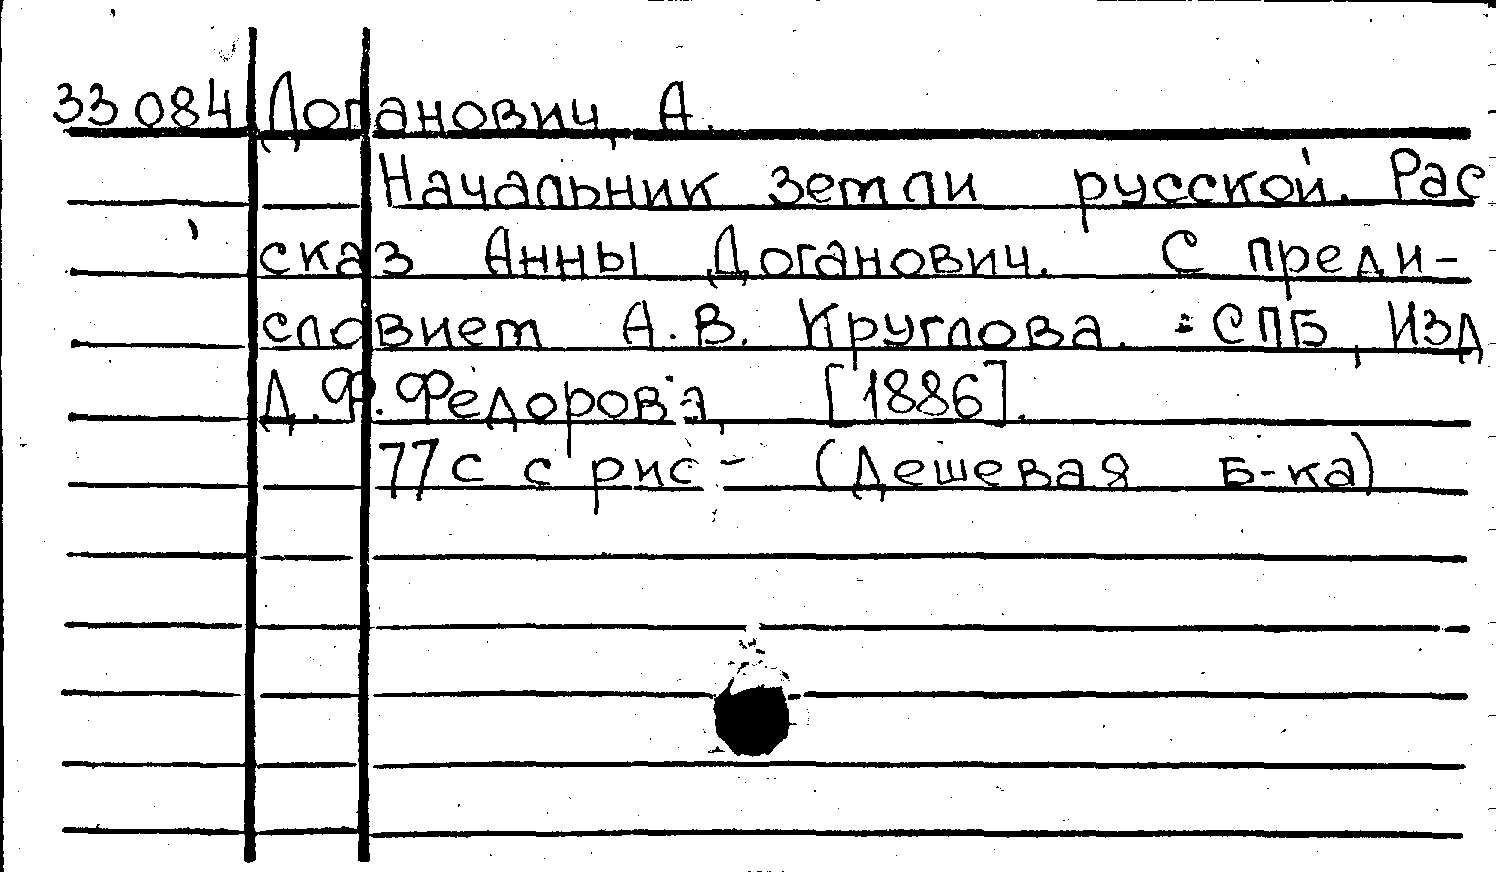 33084 Доганович, А.
Начальник земли русской. Рас
сказ Анны Доганович. С преди-
словием А.В. Круглова. : СПБ, Изд
Д.Ф.Федорова, [1886].
77с с рис - (Дешевая б-ка)